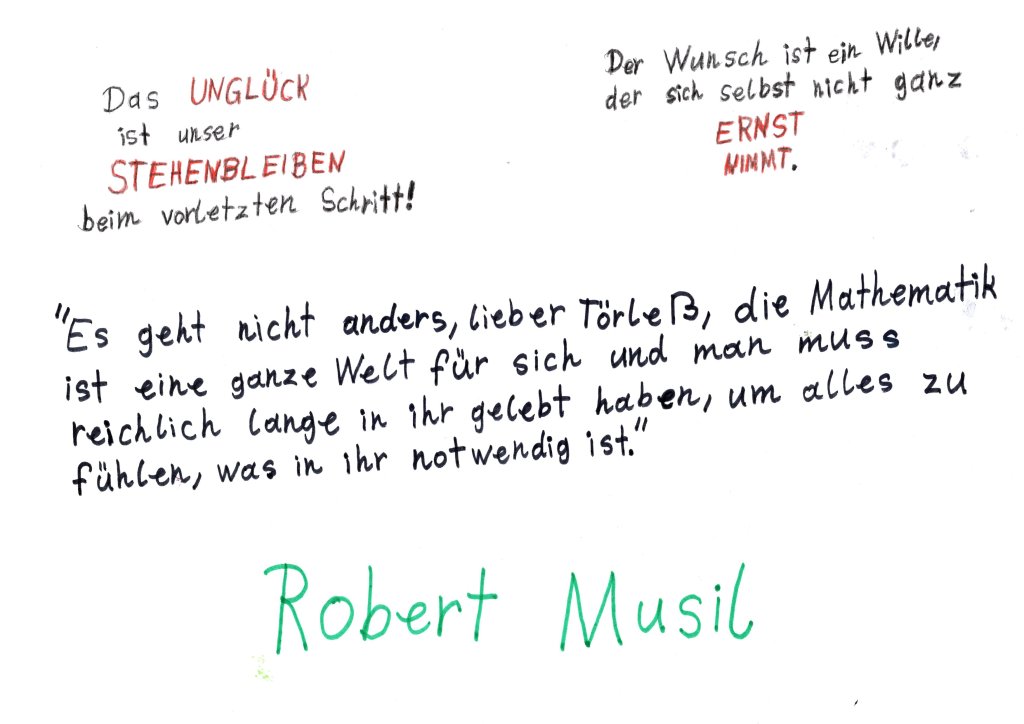 Das UNGLÜCK
ist unser
STEHENBLEIBEN
beim vorletzten Schritt!
Der Wunsch ist ein Wille,
der sich selbst nicht ganz
ERNST
NIMMT.
"Es geht nicht anders, lieber Törleß, die Mathematik
ist eine ganze Welt für sich und man muss
reichlich lange in ihr gelebt haben, um alles zu
fühlen, was in ihr notwendig ist."
Robert Musil